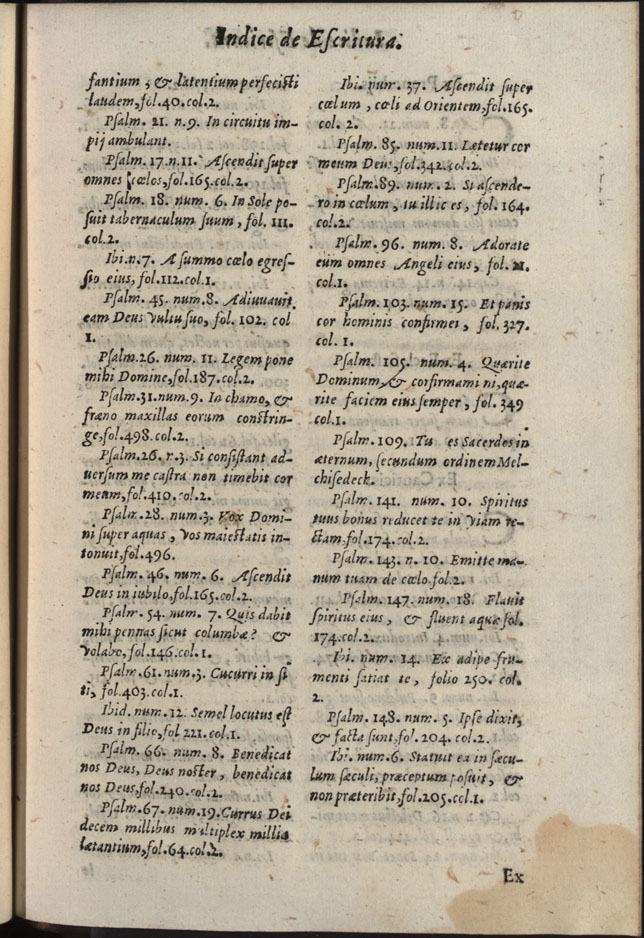 Indice de Eſcritura.
fantium, & latentium perfeciſti
laudem, fol.40.col.2.
Pſalm. 21. n.9. In circuitu im-
pij ambulant.
Pſalm.17.n.11. Aſcendit ſuper
omnes cœlos, fol.165.col.2.
Pſalm. 18. num. 6. In Sole po-
ſuit tabernaculum ſuum, fol. 111.
col.2.
Ibi.n.7. A ſummo cœlo egreſ-
ſio eius, fol.112.col.1.
Pſalm. 45. num.8. Adiuuauit
eam Deus vultu ſuo, fol. 102. col
1.
Pſalm.26. num. 11. Legem pone
mihi Domine, fol.187.col.2.
Pſalm.31.num.9. In chamo, &
fræno maxillas eorum conſtrin-
ge, fol.498.col.2.
Pſalm.26.n.3. Si conſiſtant ad-
uerſum me caſtra non timebit cor
meum, fol.410.col.2.
Pſalm.28. num.3. Vox Domi-
ni ſuper aquas, vos maieſtatis in-
tonuit, fol.496.
Pſalm. 46. num. 6. Aſcendit
Deus in iubilo, fol.165.col.2.
Pſalm. 54. num. 7. Quis dabit
mihi pennas ſicut columbæ? &
volabo, fol.146.col.1.
Pſalm.61.num.3. Cucurri in ſi
ti, fol.403.col.1.
Ibid. num.12. Semel locutus eſt
Deus in filio, fol 221.col.1.
Pſalm. 66. num. 8. Benedicat
nos Deus, Deus noſter, benedicat
nos Deus, fol.240.col.2.
Pſalm.67.num.19.Currus Dei
decem millibus multiplex millia
lætantium, fol.64.col.2.
Ibi. num. 37. Aſcendit ſuper
cœlum, cœli ad Orientem, fol.165.
col. 2.
Pſalm. 85. num.11. Lætetur cor
meum Deus, fol.342.col.2.
Pſalm.89. num. 2. Si aſcende-
ro in cœlum, tu illic es, fol. 164.
col.2.
Pſalm. 96. num. 8. Adorate
eum omnes Angeli eius, fol. 21.
col.1.
Pſalm. 103. num. 15. Et panis
cor hominis confirmet, fol. 327.
col. 1.
Pſalm. 105. num. 4. Quærite
Dominum, & corfirmami ni, quæ-
rite faciem eius ſemper, fol. 349
col.1.
Pſalm. 109. Tu es Sacerdos in
æternum, ſecundum ordinem Mel-
chiſedeck.
Pſalm. 141. num. 10. Spiritus
tuus bonus reducet te in viam re-
ctam, fol.174.col.2.
Pſalm. 143. n. 10. Emitte ma-
num tuam de cœlo, fol.2.
Pſalm. 147. num. 18. Flauit
ſpiritus eius, & fluent aquæ fol.
174.col.2.
Ibi. num. 14. Ex adipe fru-
menti ſatiat te, folio 250. col.
2.
Pſalm. 148. num. 5. Ipſe dixit,
& facta ſunt, fol. 204. col.2.
Ibi. num.6. Statuit ea in ſæcu-
lum ſæculi, præceptum poſuit, &
non præteribit, fol.205.col.1.
Ex